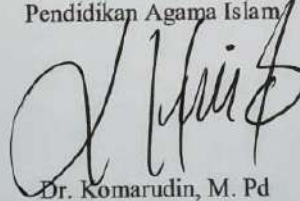 Pendidikan Agama Islam
Dr. Komarudin, M. Pd